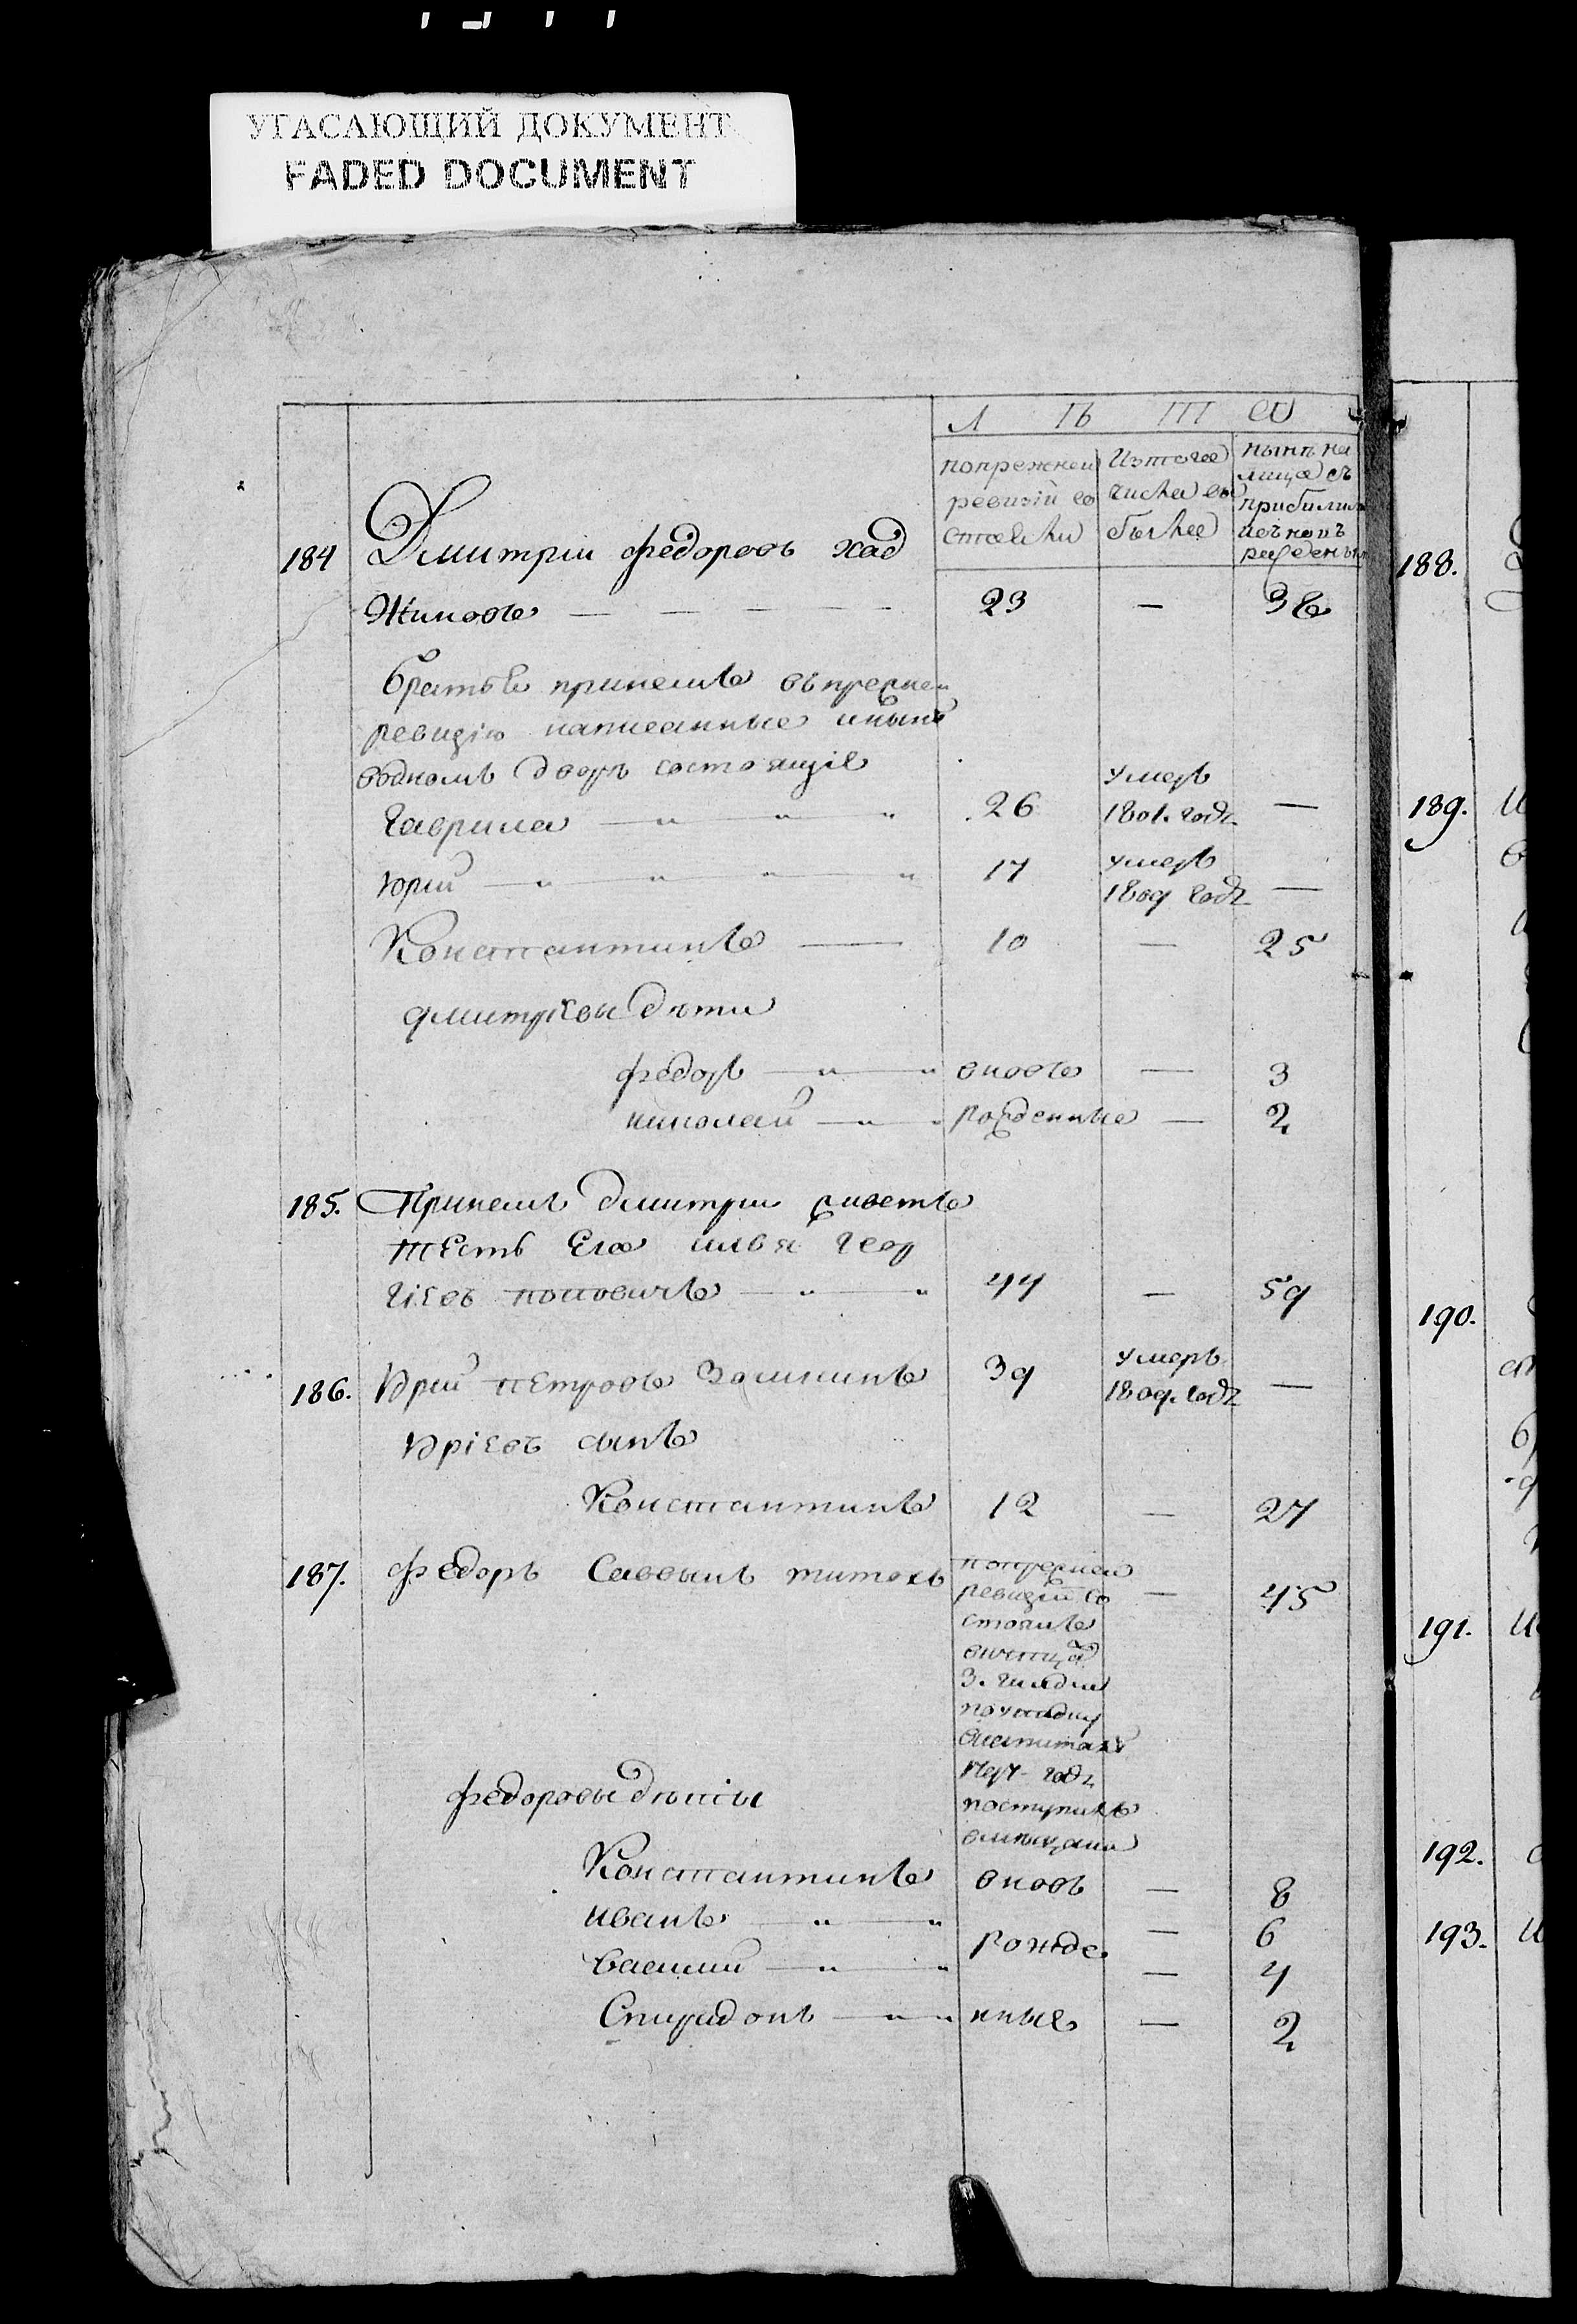 УГАСАЮЩИЙ ДОКУМЕНТ
FADED DOCUMENT
Л ѣ т а
попрежней ревизій со стояли
Изтого числа вы было
нынѣ на лицо съ
184 Дмитріи федоровъ хад
жиновъ — — — — 23 — 38
братья при немъ въ прежней
ревизію написанные инынѣ
водномъ дворѣ состоящіе
Гаврила — „ „ „ 26 умеръ 1801. годъ —
юрий — „ — „ „ „ 17 умеръ 1809 годъ —
Константинъ — 10 — 25
дмитріевы дѣти
федоръ — „ — „ вновь — 3
николай — „ — „ рожденные — 2
185. При немъ дмитри живетъ
тесть Его илья Геор
гіевъ поповичъ — „ — „ 44 — 59
186. Юрий петровъ 39 умеръ 1809. годъ —
Юріевъ сынъ
Константинъ 12 — 27
187. федоръ Саввинъ титовъ — 45
попрежней
ревизіи со
стоялъ
3. гилдии
1794 годъ
поступилъ
вмѣщане
федоровы дѣти
Константинъ вновь — 8
иванъ — „ — „ — 6
рожде
василий — „ — „ — 4
Спиридонъ — „ — „ нные — 2
188.
189.
190.
191.
192.
193.